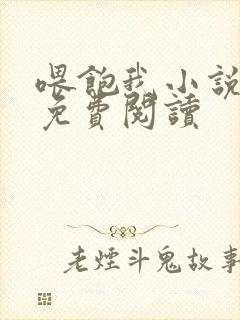 喂飽我小說
免費閱讀
老煙斗鬼故事